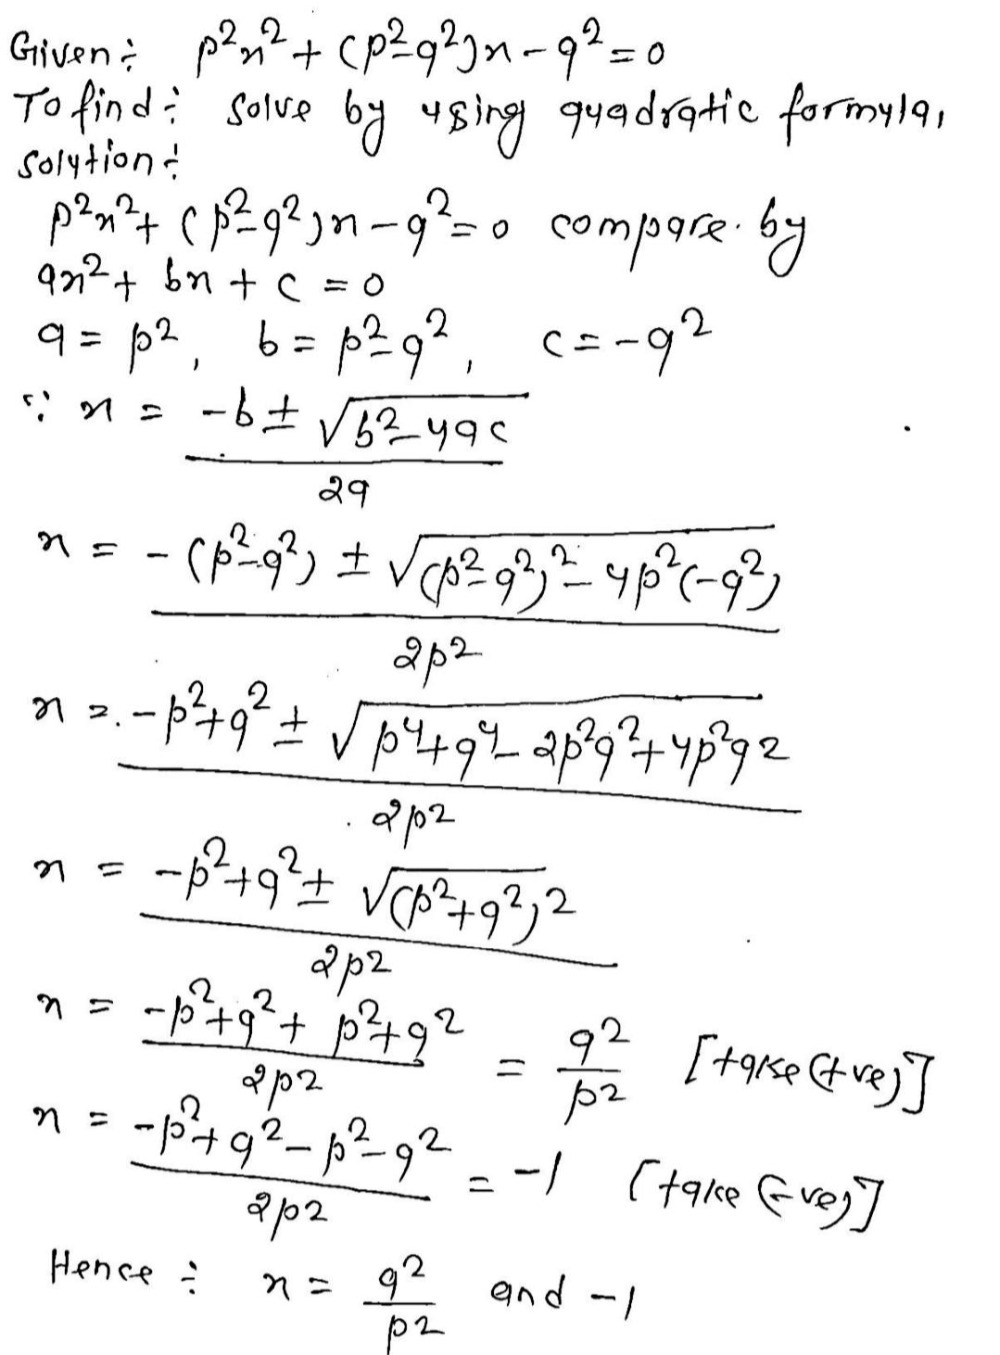 Given÷ p²x² + (p²-q²)x - q² = 0
To find÷ solve by using quadratic formula,
Solution÷
p²x² + (p²-q²)x - q² = 0 compare by
ax² + bx + c = 0
a = p², b = p²-q², c = -q²
∵ x = (-b ± √(b²-4ac))/(2a)
x = (-(p²-q²) ± √((p²-q²)² - 4p²(-q²)))/(2p²)
x = (-p²+q² ± √(p⁴+q⁴-2p²q²+4p²q²))/(2p²)
x = (-p²+q² ± √((p²+q²)²))/(2p²)
x = (-p²+q²+p²+q²)/(2p²) = q²/p² [take (+ve)]
x = (-p²+q²-p²-q²)/(2p²) = -1 [take (-ve)]
Hence÷ x = q²/p² and -1